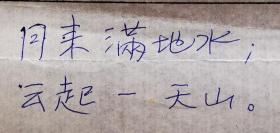 月来滿地水；
云起一天山。